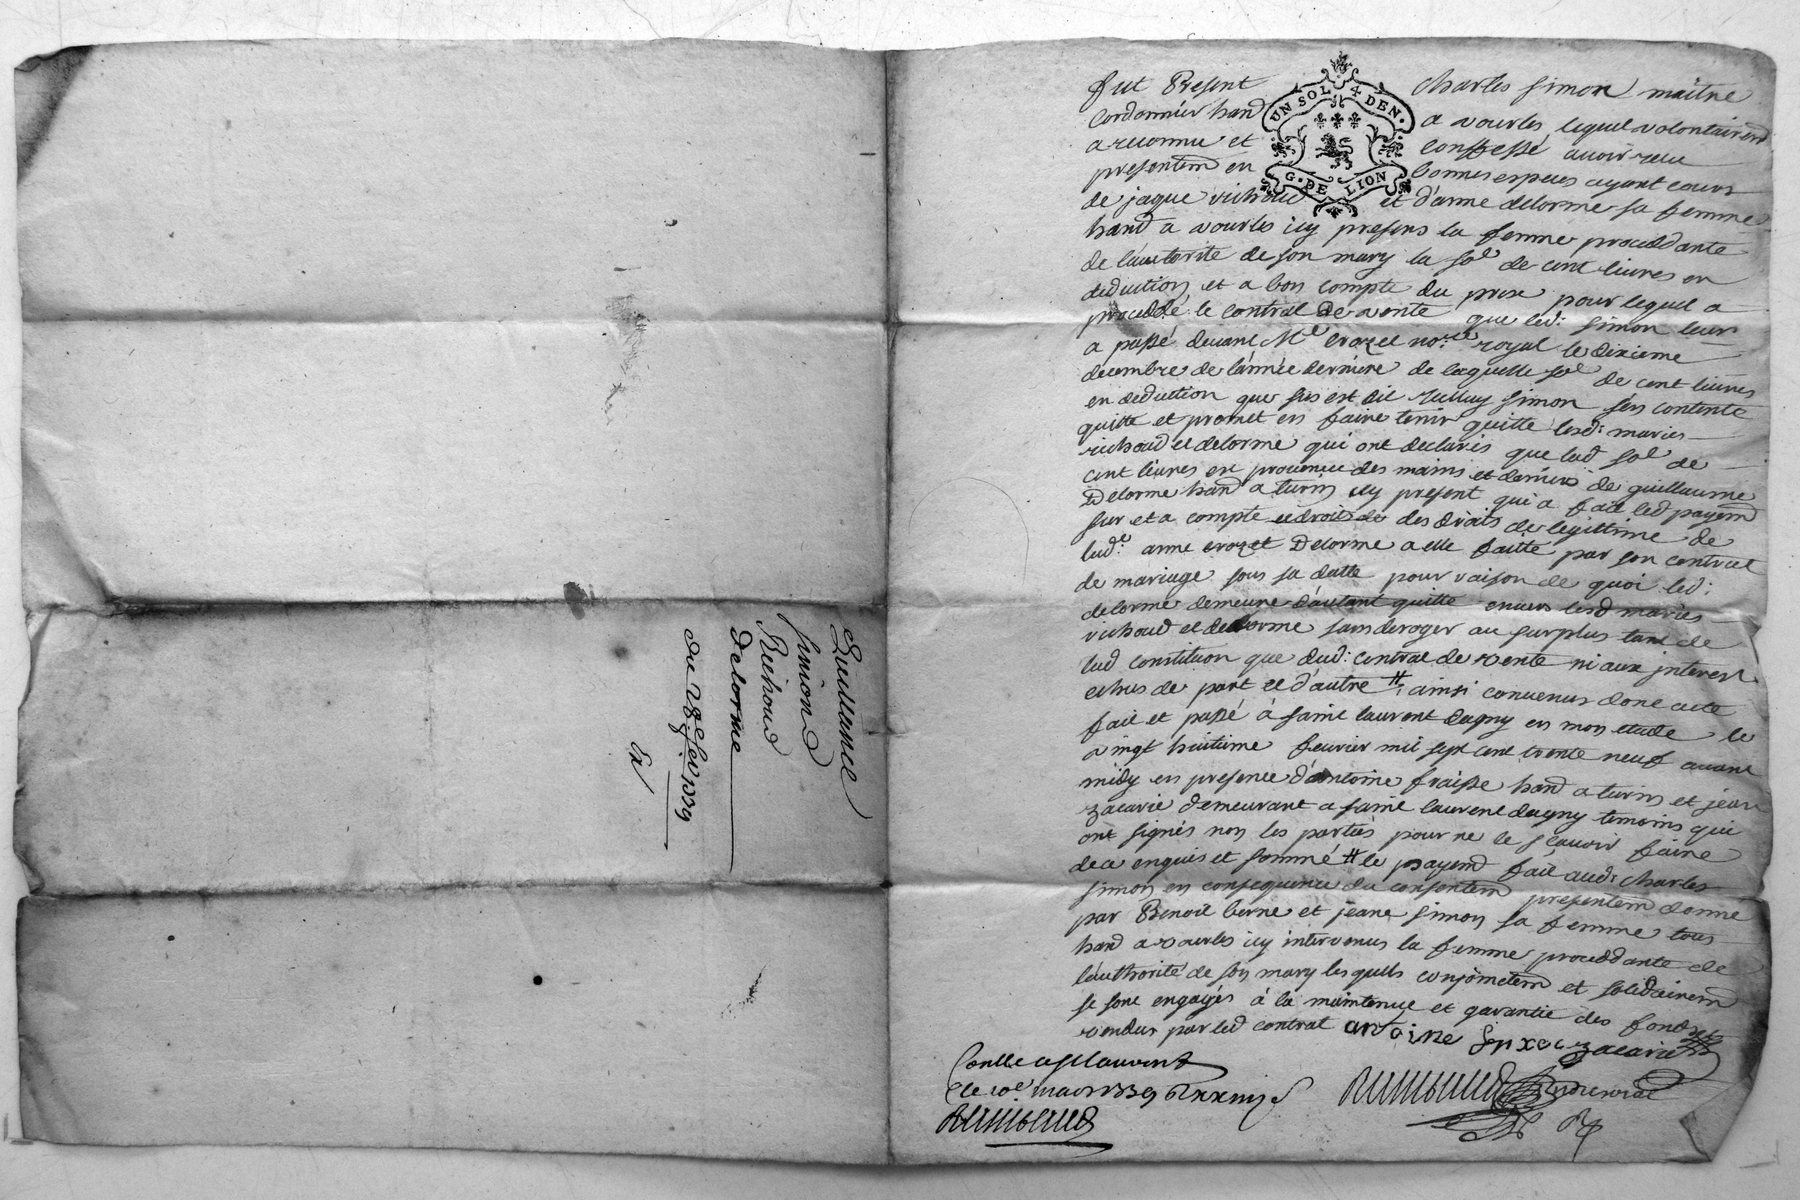 Quittance
Simond
Richoud
Delorme
du 28e fev 1739
UN SOL 4 DEN.
G. DE LION
fut Present Charles Simon maitre
Cordonnier hand a vourles lequel volontairemt
a reconnu et confessé avoir receu
presentemt en bonnes especes ayant cours
de jaque richoud et d'anne delorme sa femme
hand a vourles icy presens la femme proceddante
de l'autorité de son mary la soe de cent livres en
deduction et a bon compte du prix pour lequel a
proceddé le contrat de vente que led: Simon leur
a passé devant Me crozet nore royal le dixieme
decembre de l'année derniere de laquelle soe de cent livres
en deduction que sus est dit Simon s'en contente
quitte et promet en faire tenir quitte lesd: mariés
richoud et delorme qui ont declarés que lad soe de
cent livres en provenue des mains et deniers de guillaume
Delorme hand a turin icy present qui a fait led payemt
sur et a compte des droits de legittime de
lade: anne Delorme a elle faitte par son contrat
de mariage sous sa datte pour raison de quoi led:
delorme demeure d'autant quitte envers lesd mariés
richoud et delorme sans deroger au surplus tant de
lad constitution que dud: contrat de vente ni aux interest
echus de part et d'autre # ainsi convenus dont acte
fait et passé à saint laurent dagny en mon etude le
vingt huitieme fevrier mil sept cent trente neuf avant
midy en presence d'antoine fraisse hand a turin et jean
zacarie demeurant a saint laurent dagny temoins qui
ont signés non les parties pour ne le sçavoir faire
de ce enquis et sommé # le payemt fait aud: Charles
Simon en consequence du consentemt presentemt donné
par Benoit berne et jeane Simon sa femme tous
hand a vourles icy intervenus la femme proceddante de
l'authorité de son mary lesquels conjointemt et solidairemt
se sont engagés à la maintenue et garantie des fonds
vendus par led contrat antoine zacarie
Conlle a St laurent
le 10e mars 1739